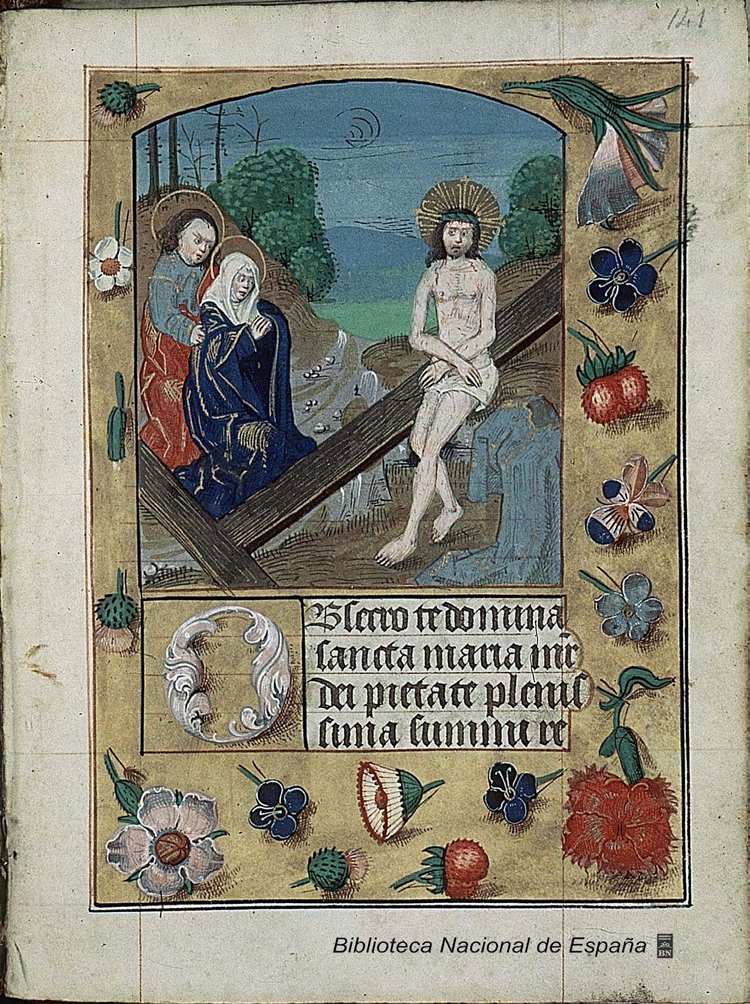 OBsecro te domina
sancta maria mr̄
dei pietate plenis
sima summi re
Biblioteca Nacional de España
BN